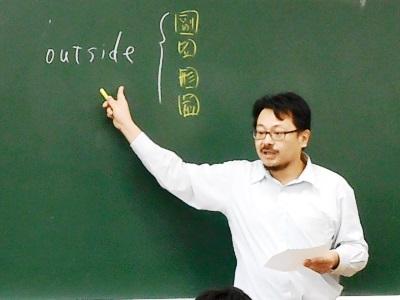 outside
副
名
形
前